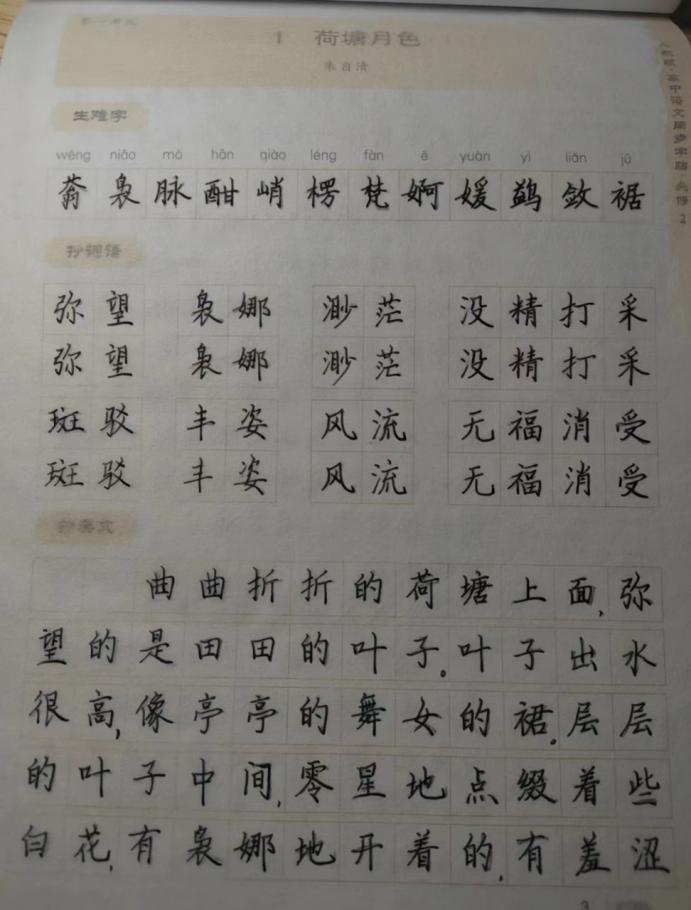 第一单元
1 荷塘月色
朱自清
人教版·高中语文同步字帖·必修2
生难字
wēng niǎo mò hān qiào léng fàn ē yuàn yì liǎn jū
蓊 袅 脉 酣 峭 楞 梵 婀 媛 鹢 敛 裾
抄词语
弥望 袅娜 渺茫 没精打采
弥望 袅娜 渺茫 没精打采
斑驳 丰姿 风流 无福消受
斑驳 丰姿 风流 无福消受
抄美文
曲曲折折的荷塘上面,弥
望的是田田的叶子。叶子出水
很高,像亭亭的舞女的裙。层层
的叶子中间,零星地点缀着些
白花,有袅娜地开着的,有羞涩
3